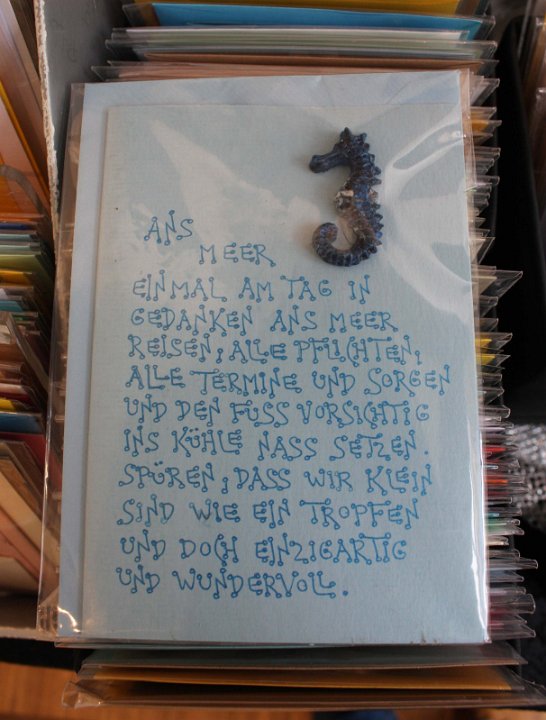 ANS
MEER
EINMAL AM TAG IN
GEDANKEN ANS MEER
REISEN, ALLE PFLICHTEN,
ALLE TERMINE UND SORGEN
UND DEN FUSS VORSICHTIG
INS KÜHLE NASS SETZEN.
SPÜREN, DASS WIR KLEIN
SIND WIE EIN TROPFEN
UND DOCH EINZIGARTIG
UND WUNDERVOLL.